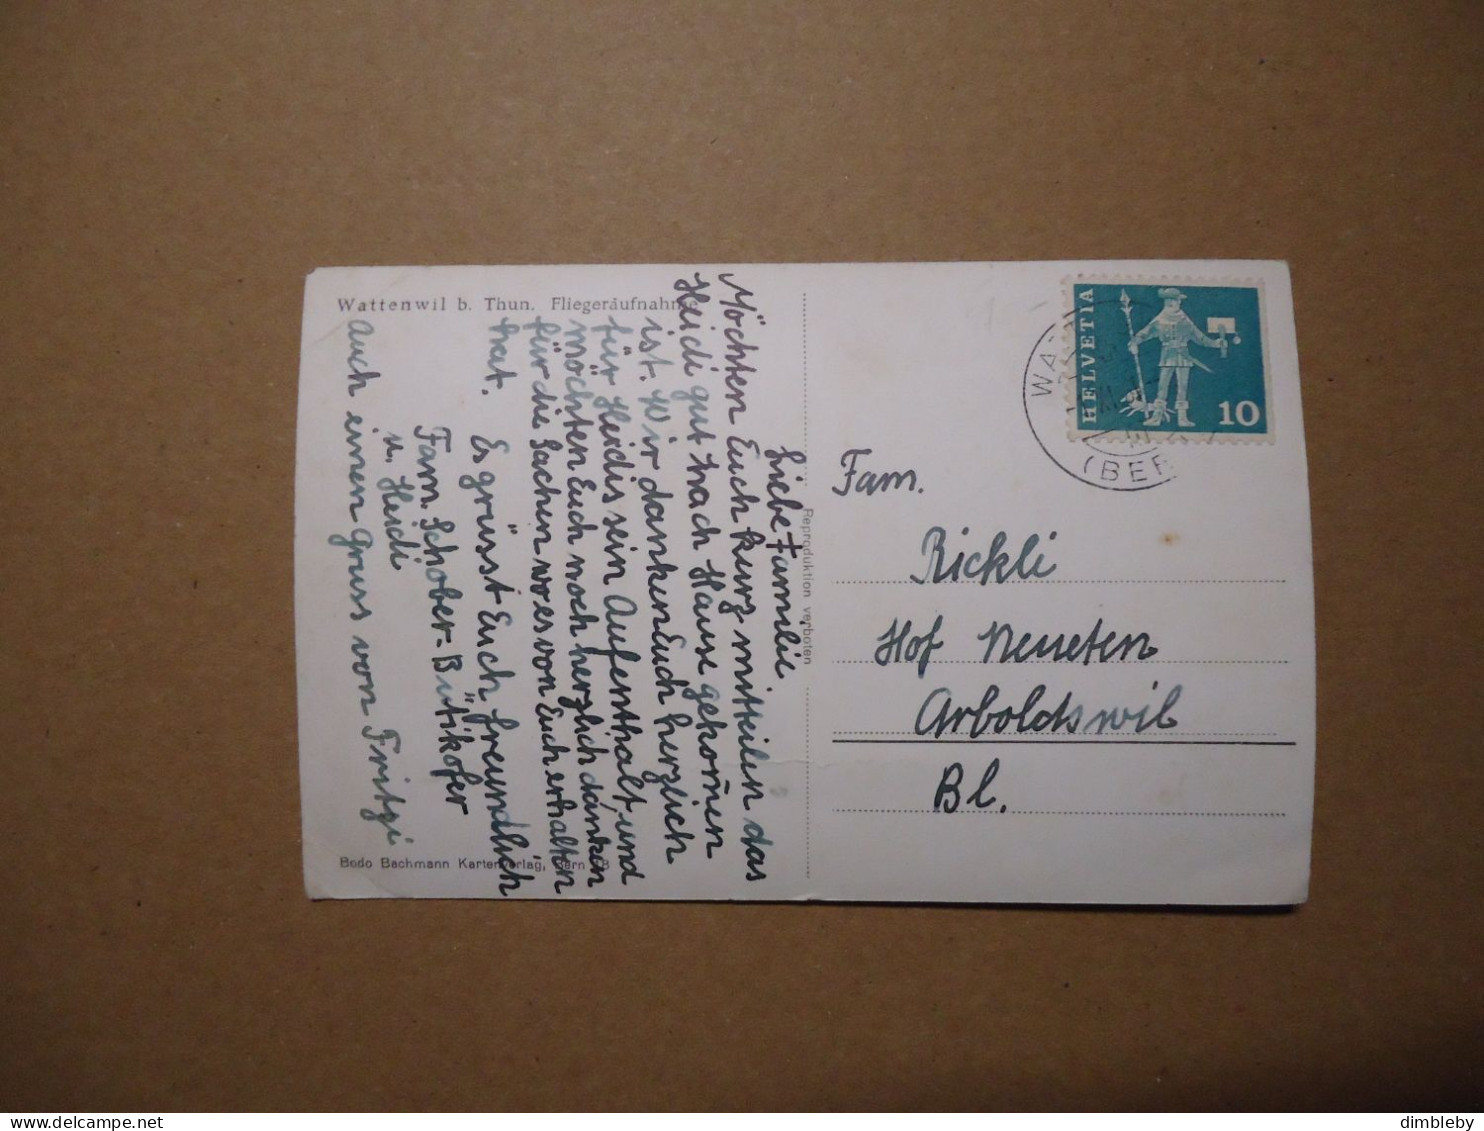 Wattenwil b. Thun. Fliegeraufnahme
Liebe Familie
Möchten Euch kurz mitteilen das
Heidi gut nach Hause gekom̄en
ist. Wir danken Euch herzlich
für Heidis sein Aufenthalt, und
möchten Euch noch herzlich danken
für die Sachen wo es von Euch erhalten
hat.
Es grüsst Euch freundlich
Fam. Schober-Bütikofer
u. Heidi
Auch einen Gruss von Fritzi
Bodo Bachmann Kartenverlag, Bern 18
Reproduktion verboten
HELVETIA
10
(BER
Fam.
Rickli
Hof Neueten
Arboldswil
Bl.
delcampe.net
dimbleby